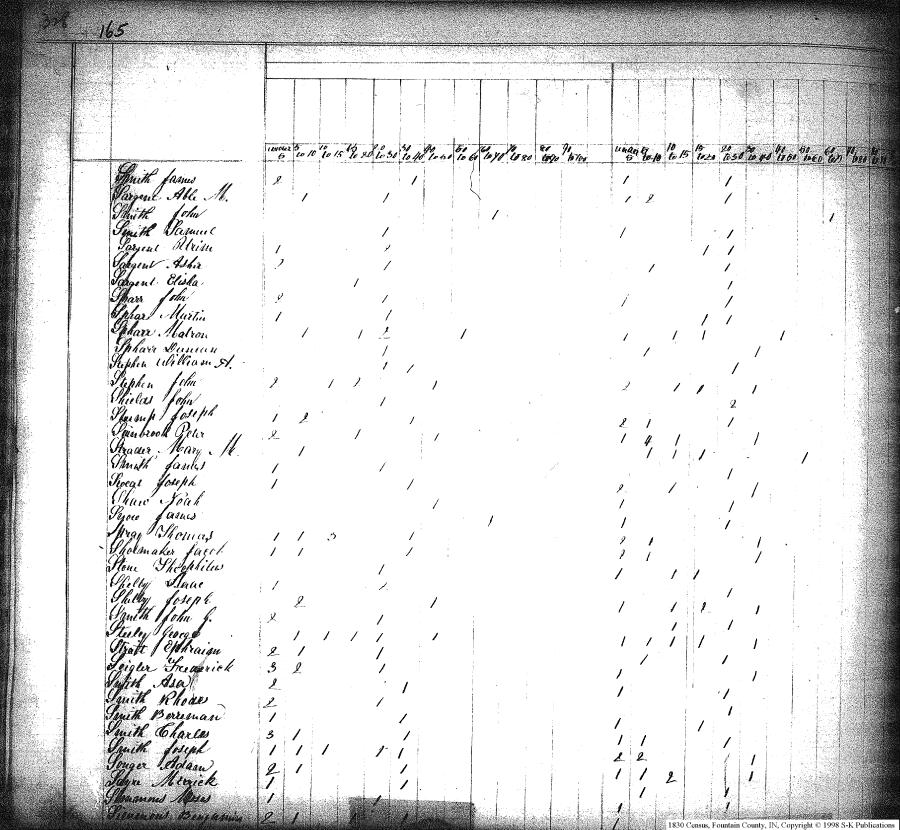 328
165
under 5 5 to 10 10 to 15 15 to 20 20 to 30 30 to 40 40 to 50 50 to 60 60 to 70 70 to 80 80 to 90 90 to 100 under 5 5 to 10 10 to 15 15 to 20 20 to 30 30 to 40 40 to 50 50 to 60
Smith James 2 1 1 1
Sargent Able M. 1 1 1 2 1
Smith John 1 1
Smith Samuel 1 1 1
Sargent 1 2 1 1
Sargent 2 1 1 1
Sargent Elisha 1 1
Sharr John 2 1 1 1
Sphar Martin 1 1 1 1
Spharr 1 1 2 1 1 1 1 1
Spharr Duncan 1 1 1
Stephen William A. 1 1 1
Stephen John 2 1 2 1 2 1 1 1
Shields John 1 2
Stump Joseph 1 2 1 2 1 1
Sambrook Peter 2 1 1 1 4 1 1
Strader Mary M. 1 1 1 1 1
Smith James 1 1 1
Joseph 1 1 2 1
Shaw Noah 1 1 1
James 1 1 1
Spray Thomas 1 1 3 1 2 1 1
Shoemaker Jacob 1 1 1 2 1 1
Stone Theophilus 1 1 1 1
Shelby Isaac 1 2 1
Shelby Joseph 2 1 1 1 2 1
Smith John G. 2 1 1 1
Steeley George 1 1 1 1 1 1 1 1
Stratt Ephraim 2 1 1 1 1 1 1 1
Seigler Frederick 3 2 1 1 1
Smith Asa 2 1 1 1
Smith Rhodes 2 1 1 1
Smith Berreman 1 1 1 1
Smith Charles 3 1 1 1 1
Smith Joseph 1 1 1 1 1 2 2
Songer Adam 2 1 1 1 1 2 1
Merrick 1 1 1 1
Simmons Moses 1 1 1 1
Simmons Benjamin 2 1 1 1
1830 Census, Fountain County, IN, Copyright © 1998 S-K Publications